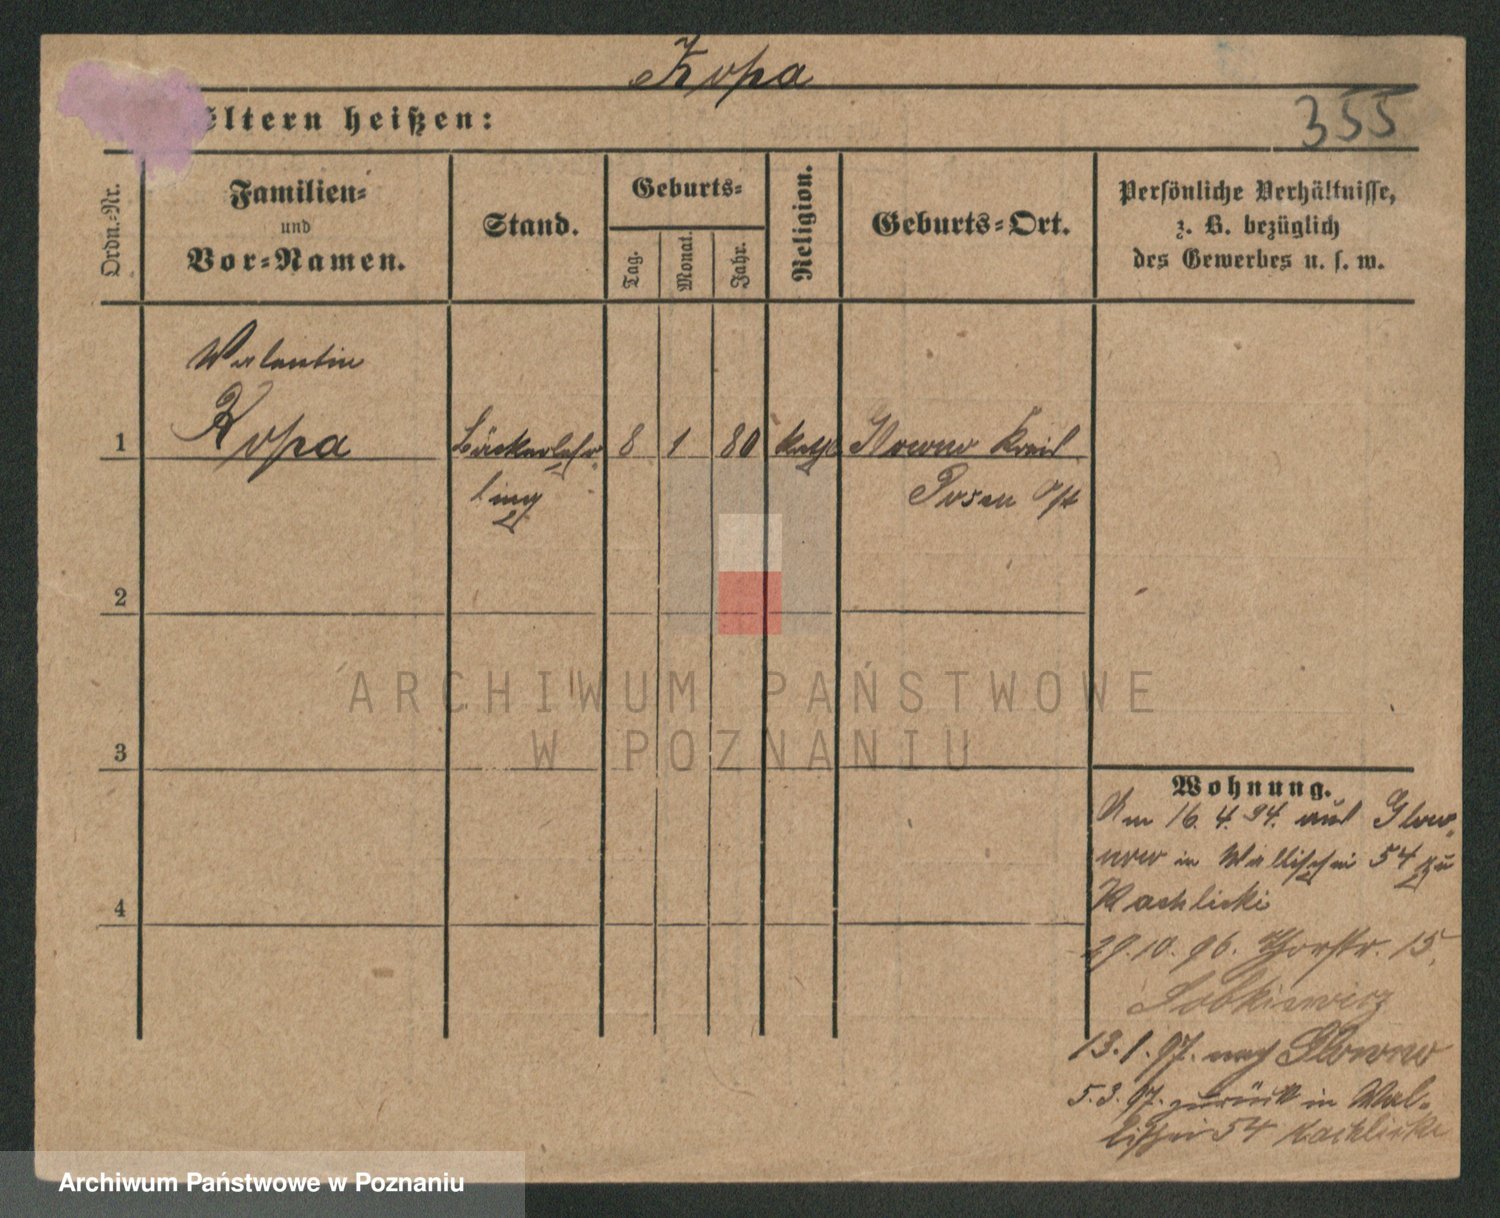 Kopa
Eltern heißen:
355
Ordn.-Nr.
Familien-
und
Vor-Namen.
Stand.
Geburts-
Tag.
Monat.
Jahr.
Religion.
Geburts-Ort.
Persönliche Verhältnisse,
z. B. bezüglich
des Gewerbes u. s. w.
Valentin
1 Kopa Bäckerlehr- 8 1 80 kath Glowno Kreis
ling Posen Ost
2
3
4
ARCHIWUM PAŃSTWOWE
W POZNANIU
Wohnung.
Am 16.4.94. aus Glow-
now in Wallischei 54 zu
Kachlicki
29.10.96. Thorstr. 15,
Sobkiewicz
13.1.97. nach Glowno
5.3.97. zurück in Wal-
lischei 54 Kachlicki
Archiwum Państwowe w Poznaniu